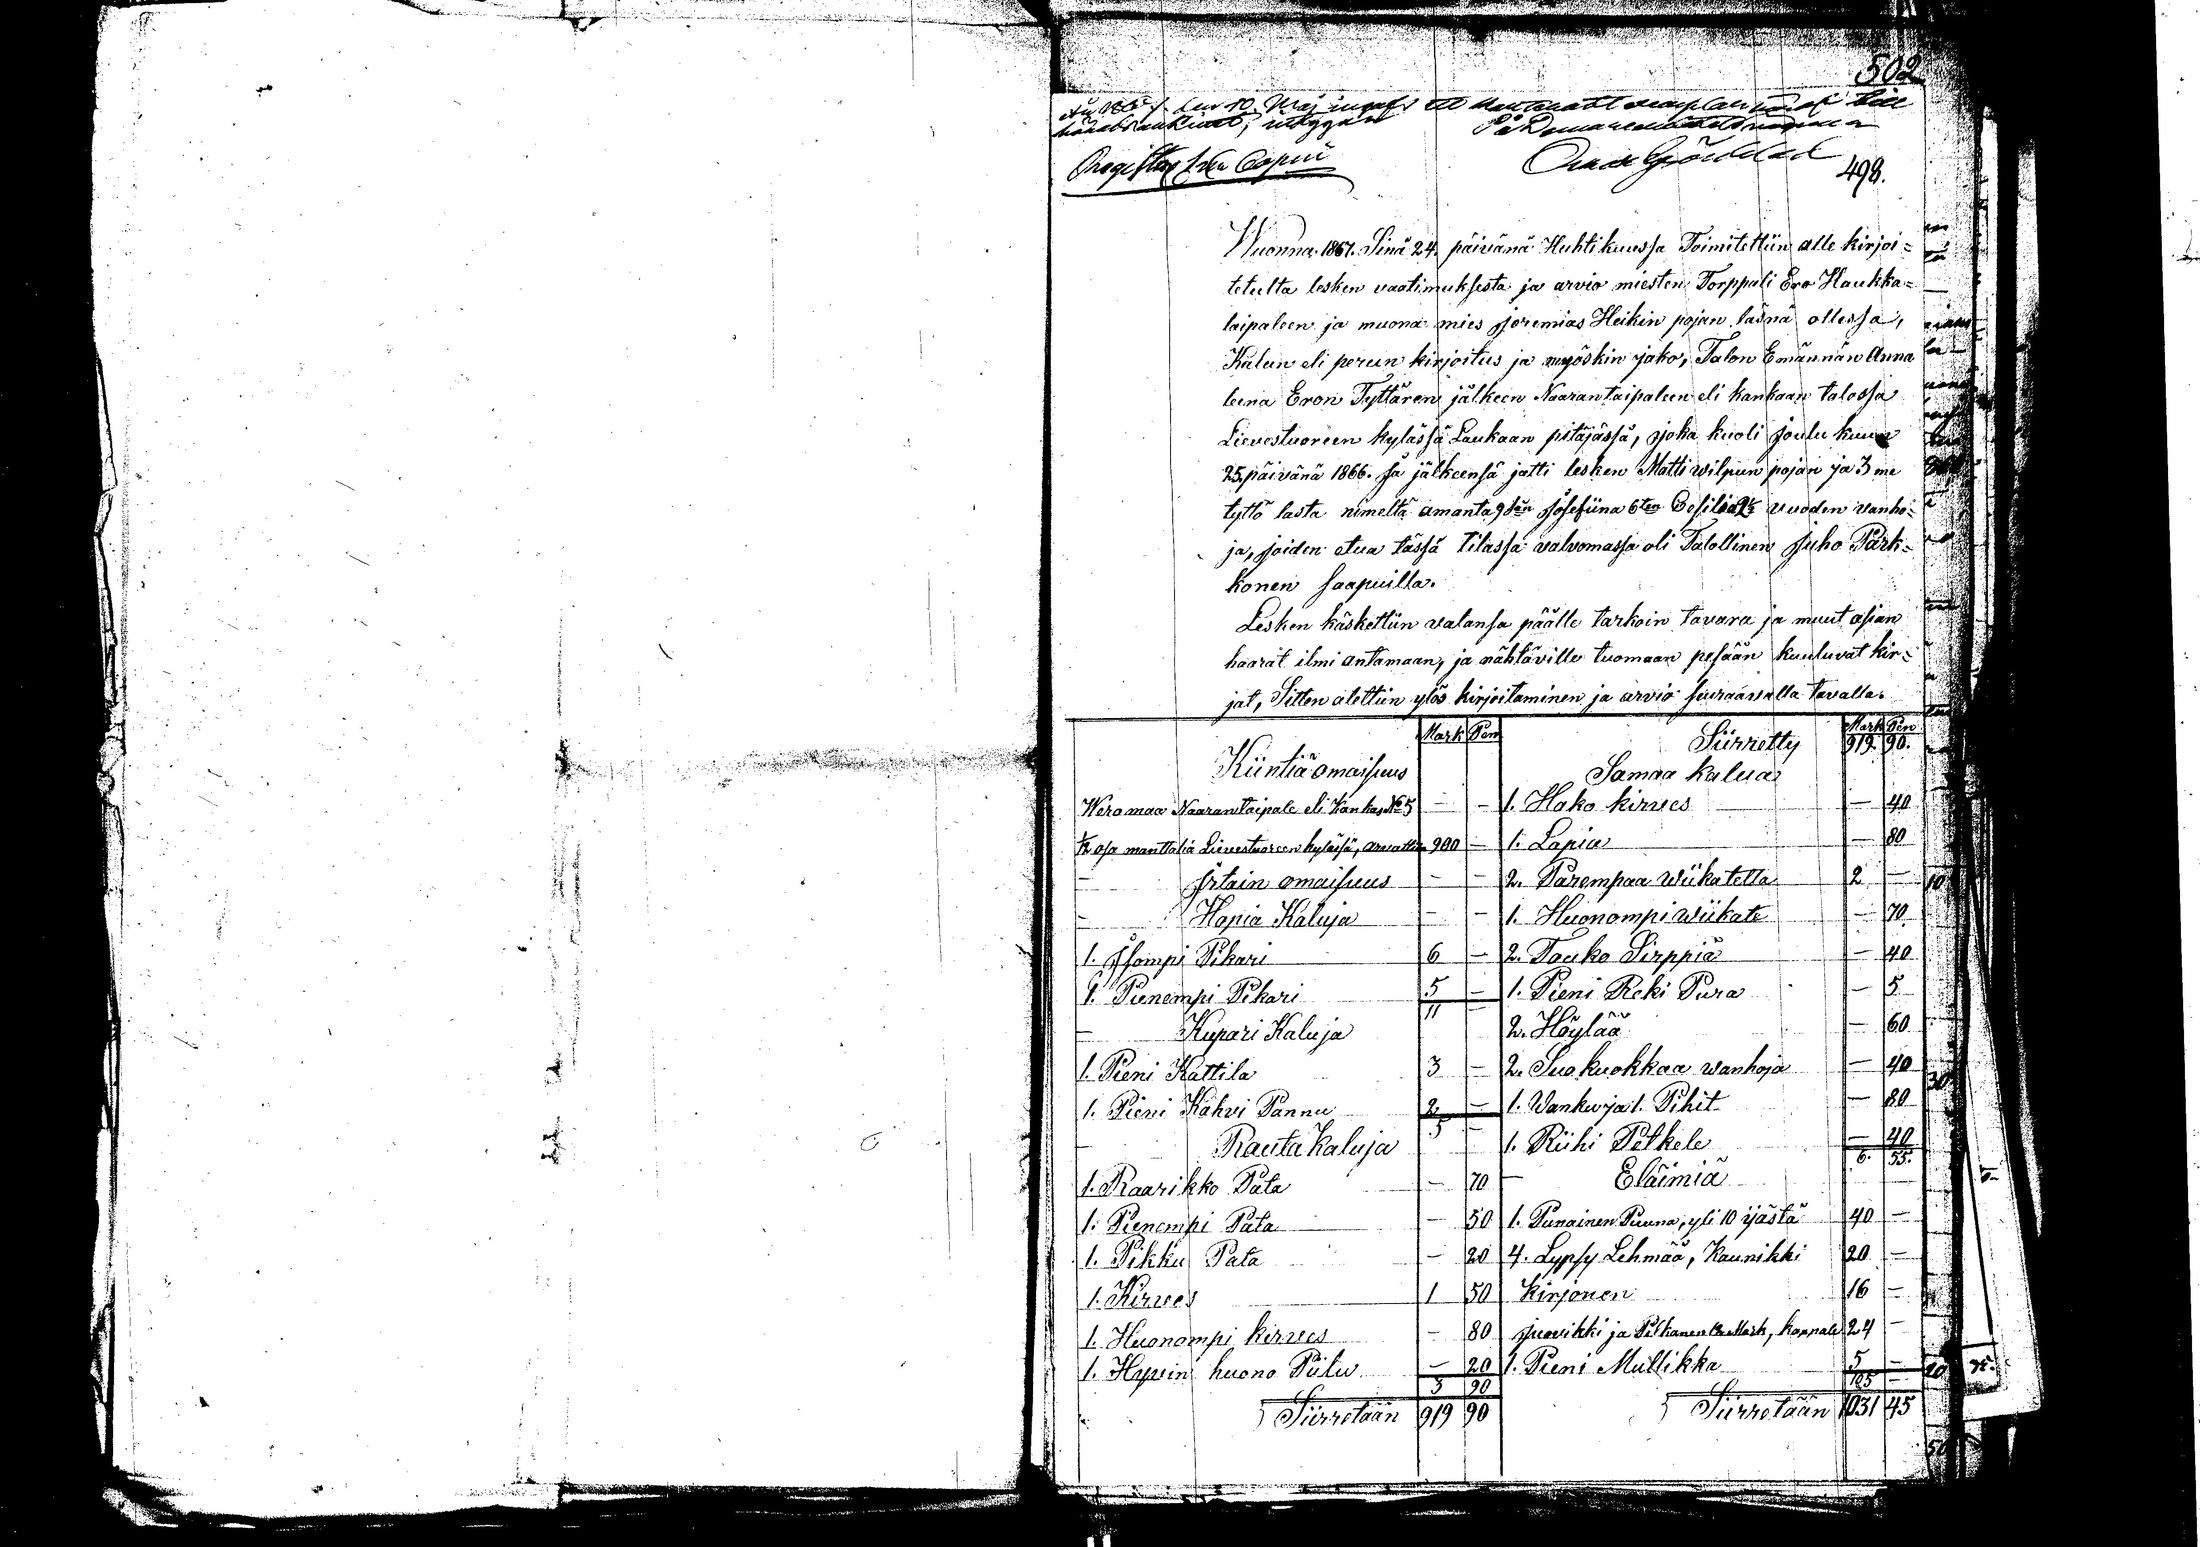 502
den 10 Maj ett
På Domareembetets vägnar
498.
Wuonna 1867. Sinä 24. päivänä Huhtikuussa Toimitettiin alle kirjoi=
tetulta lesken vaatimuksesta ja arvio miesten Torppali Ero Haukka=
taipaleen ja muona mies Jeremias Heikin pojan läsnä ollessa,
Kalun eli perun kirjoitus ja myöskin jako, Talon Emännän Anna
leena Eron Tyttären jälkeen Naarantaipaleen eli kankaan talossa
Lievestuoreen kylässä Laukaan pitäjässä, joka kuoli Joulu kuun
25 päivänä 1866. Ja jälkeensä jätti lesken Matti wilpun pojan ja 3 me
tyttö lasta nimeltä amanta 9 Josefiina 6 ten vuoden vanho=
ja, joiden etua tässä tilassa valvomassa oli Talollinen Juho Park=
konen saapuilla.
Lesken käskettiin valansa päälle tarkoin tavara ja muut asian
haarat ilmi antamaan, ja nähtäville tuomaan pesään kuuluvat kir=
jat, Sitten alettiin ylös kirjoitaminen ja arvio seuraavalla tavalla.
Mark Pen
Kiintiä omaisuus
Wero maa Naarantaipale eli Kankas No 5 — —
1/12 osa manttalia Lievestuoreen kylässä, arvattin 900 —
— Irtain omaisuus — —
— Hopia Kaluja — —
1. Isompi Pikari 6 —
1. Pienempi Pikari 5 —
11
— Kupari Kaluja
1. Pieni Kattila 3 —
1. Pieni Kahvi Pannu 2 —
5 —
— Rauta Kaluja
1. Raarikko Pata — 70
1. Pienempi Pata — 50
1. Pikku Pata — 20
1. Kirves 1 50
1. Huonompi kirves — 80
1. Hyvin huono Piilu — 20
3 90
Siirretään 919 90
Mark Pen
Siirretty 919. 90.
Samaa kalua
1. Hako kirves — 40
1. Lapia — 80
2. Parempaa Wiikatetta 2 —
1. Huonompi Wiikate — 70
2. Tauko Sirppiä — 40
1. Pieni Reki Pura — 5
2. Höylää — 60
2. Suokuokkaa wanhoja — 40
1. Wanku ja 1. Pihit — 80
1. Riihi Petkele — 40
6. 55.
— Eläimiä
1. Punainen Ruuna, yli 10 ijästä 40 —
4. Lypsy Lehmää, Kaunikki 20 —
Kirjonen 16 —
Juovikki ja Pitkanen 12 Mark, kappale 24 —
1. Pieni Mullikka 5 —
105 —
Siirretään 1031 45